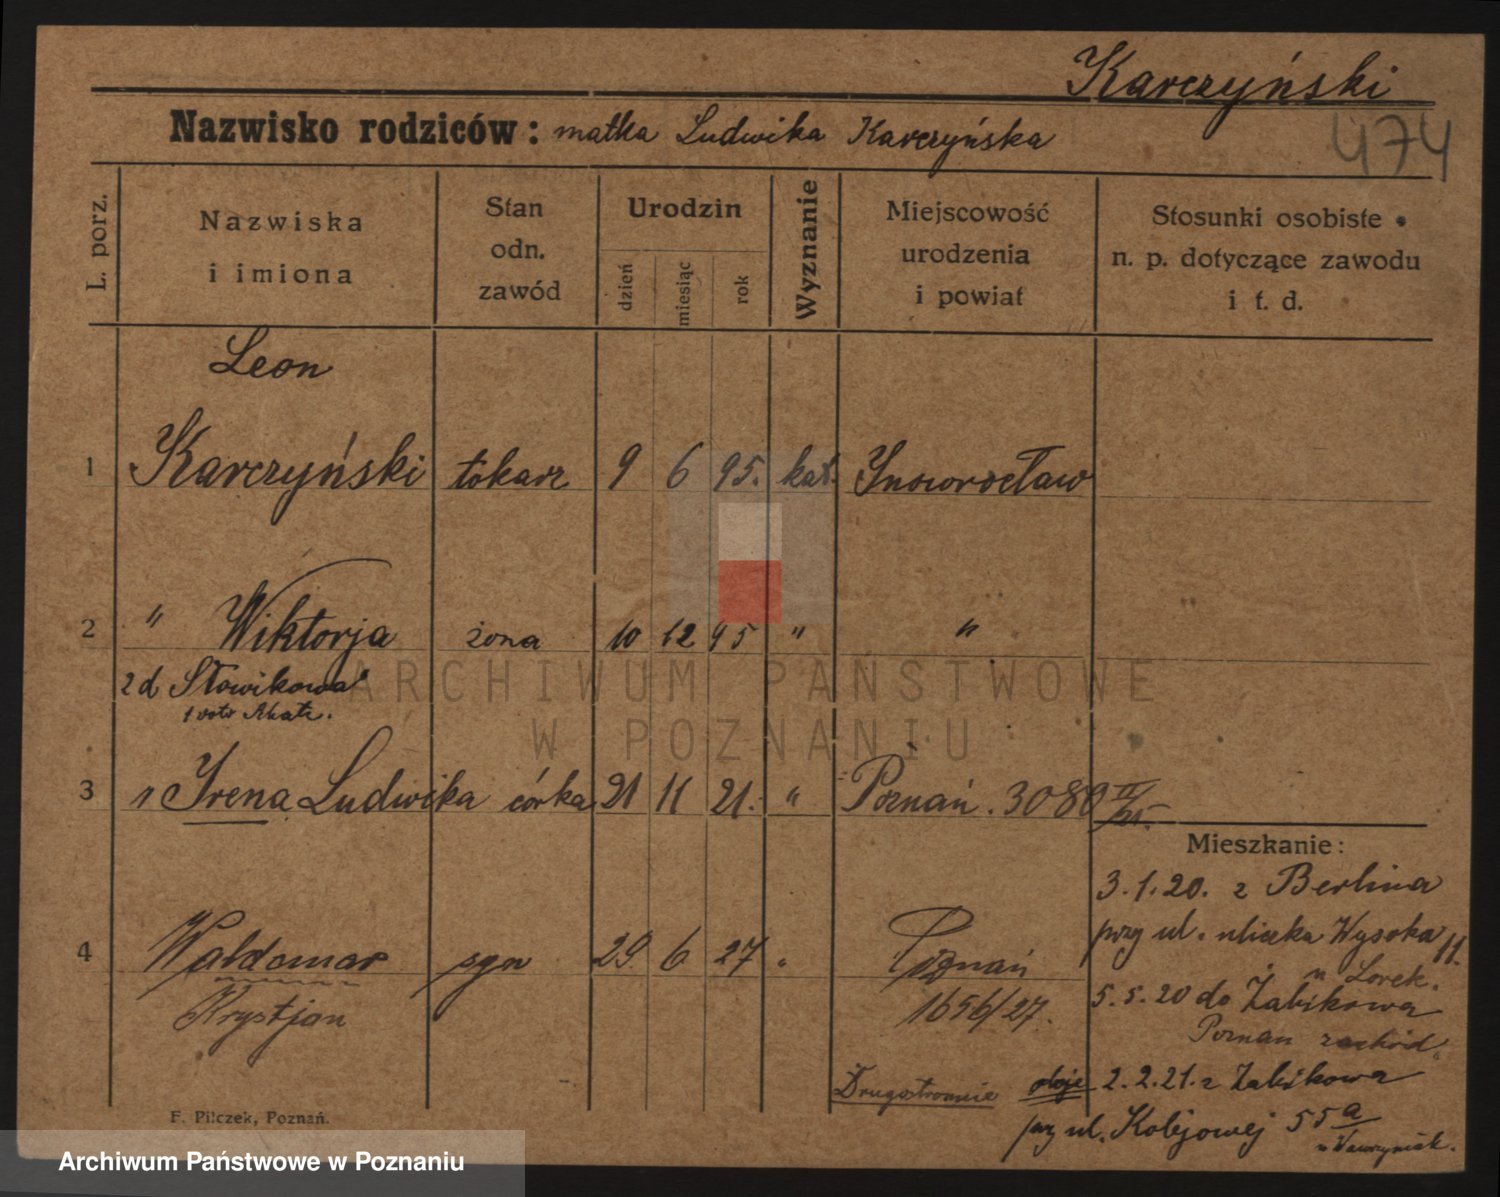 Karczyński
474
Nazwisko rodziców: matka Ludwika Karczyńska
L. porz.
Nazwiska
i imiona
Stan
odn.
zawód
Urodzin
dzień
miesiąc
rok
Wyznanie
Miejscowość
urodzenia
i powiat
Stosunki osobiste
n. p. dotyczące zawodu
i t. d.
Leon
1 Karczyński tokarz 9 6 95. kat. Inowrocław
2 " Wiktorja żona 10 12 95 " "
2 d Słowikowa
1 voto
3 Irena Ludwika córka 21 11 21. " Poznań. 3080
Mieszkanie:
3.1.20. z Berlina
przy ul. uliczka Wysoka 11.
u Lorek.
4 Waldemar syn 29. 6 27 " Poznań
Krystjan
1656/27.
5.5.20 do Żabikowa
Poznań zachód.
Drugostronnie
2.2.21. z Żabikowa
przy ul. Kolejowej 55a
u Wawrzyniak.
F. Pilczek, Poznań.
ARCHIWUM PAŃSTWOWE
W POZNANIU
Archiwum Państwowe w Poznaniu